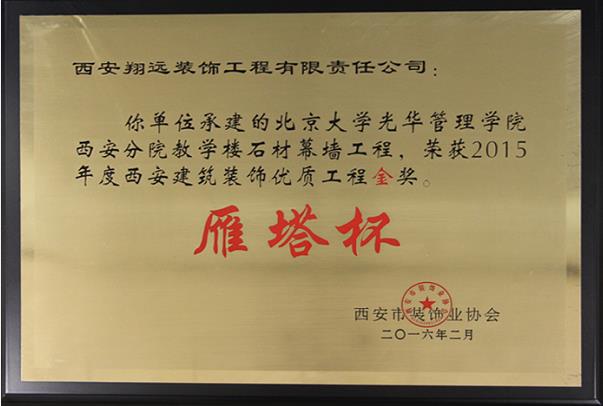 西安翔远装饰工程有限责任公司：
你单位承建的北京大学光华管理学院
西安分院教学楼石材幕墙工程，荣获2015
年度西安建筑装饰优质工程金奖。
雁塔杯
西安市装饰业协会
二〇一六年二月